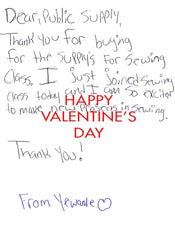 Dear, Public Supply,
Thank you for buying
for the supply's for sewing
Class, I just joined sewing
class today and I am so excited
to make new projects in sewing.
HAPPY
VALENTINE'S
DAY
Thank You!
From Yewande